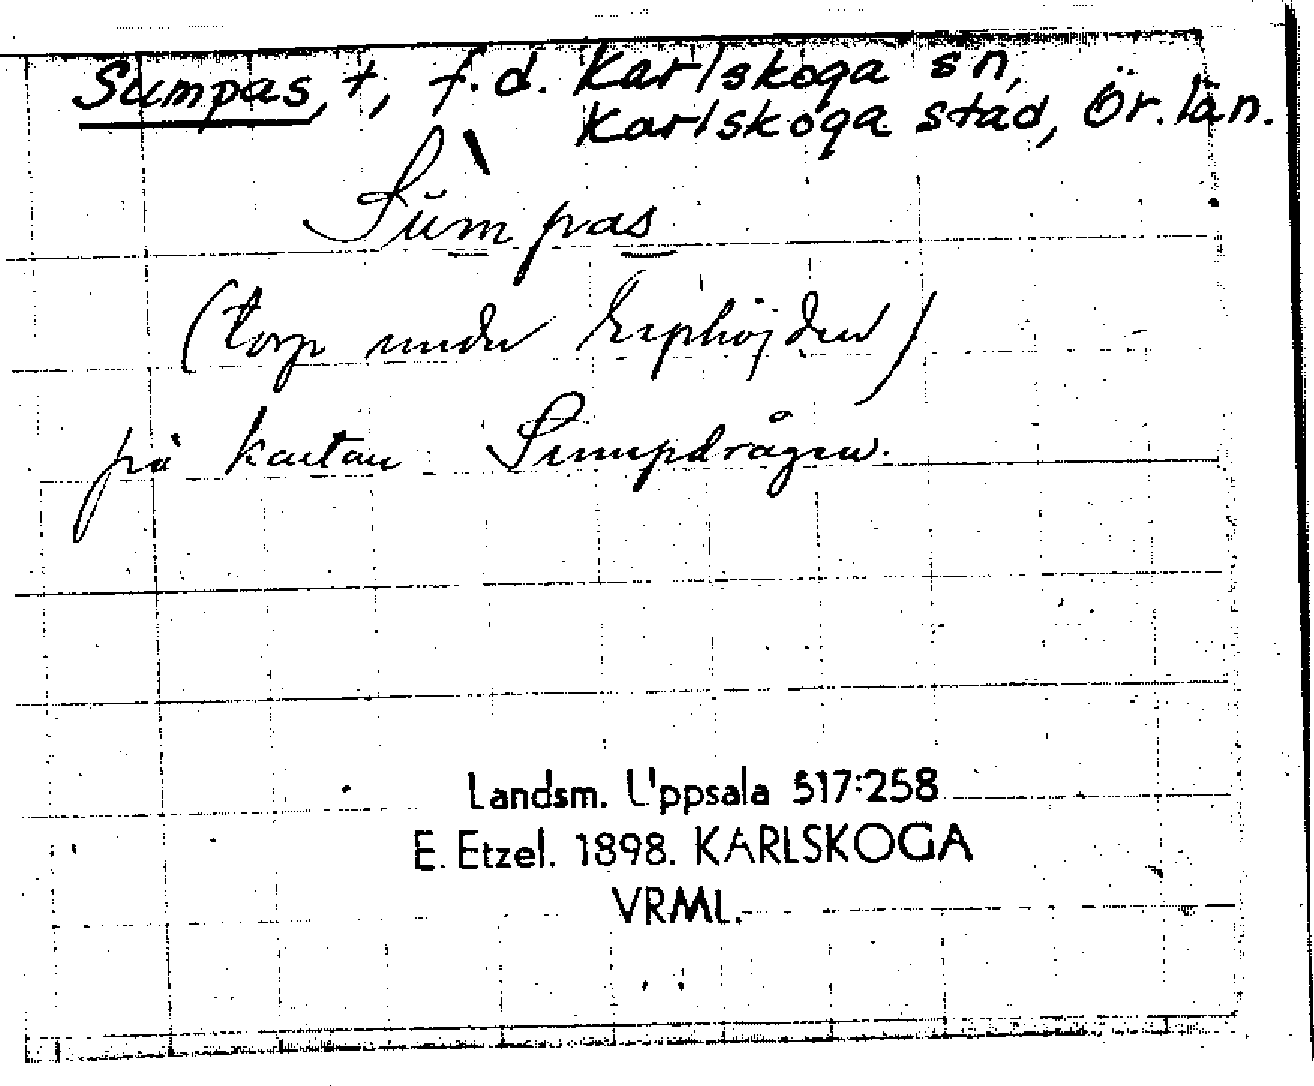 Sumpas, t, f.d. Karlskoga sn,
Karlskoga stad, Ör. län.
Sùmpas
(torp under Knphöjden)
på kartan Sumpdrågen.
Landsm. Uppsala 517:258
E. Etzel. 1898. KARLSKOGA
VRML.